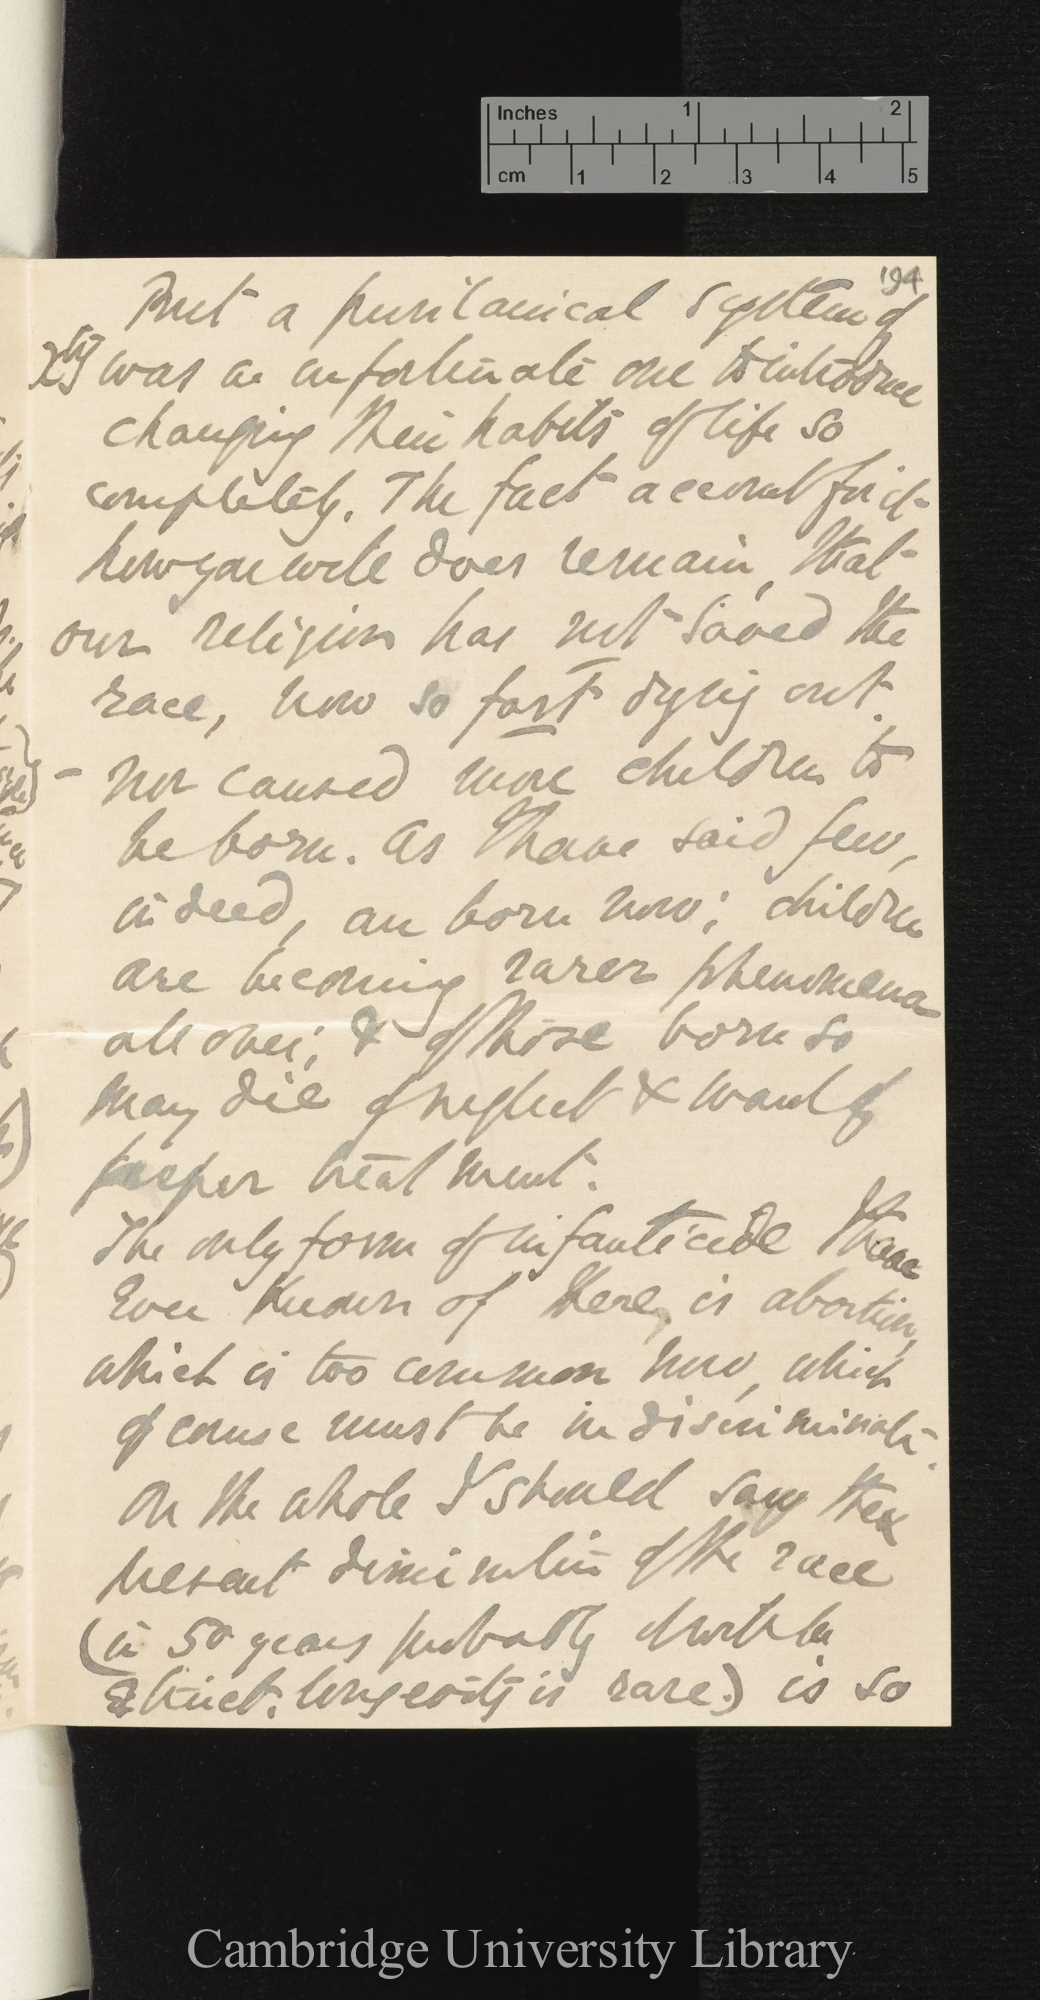 Inches 1 2
cm 1 2 3 4 5
194
But a puritanical system of
Xty was an unfortunate one to introduce
changing their habits of life so
completely. The fact account for it
how you will does remain, that
our religion has not saved the
race, now so fast dying out.
- nor caused more children to
be born. As I have said few,
indeed, are born now; children
are becoming rarer phenomena
all over; & of those born so
many die of neglect & want of
proper treatment.
The only form of infanticide I have
ever known of here, is abortion,
which is too common now, which
of course must be indiscriminate.
On the whole I should say the
present diminution of the race
(in 50 years probably it will be
extinct: longevity is rare.) is so
Cambridge University Library